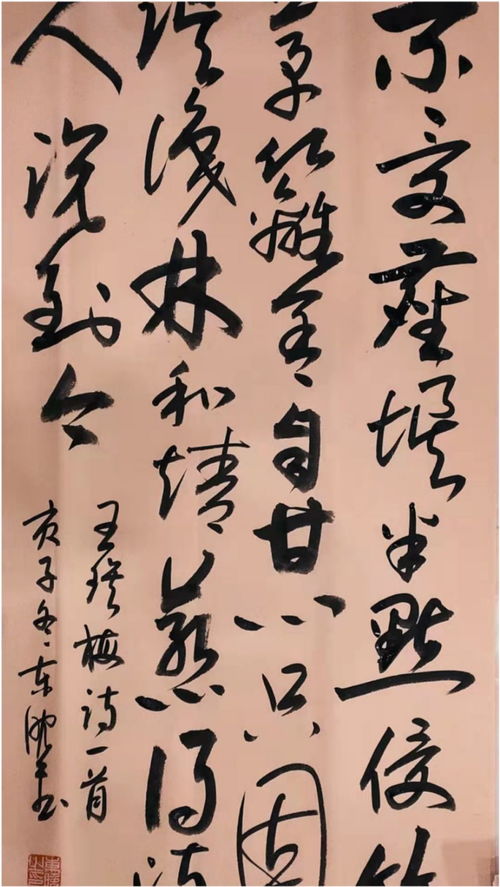 不受塵埃半點侵竹
籬舍自甘心只因
误識林和靖惹得诗
人说到今
王琪梅诗一首
庚子冬东鹏书